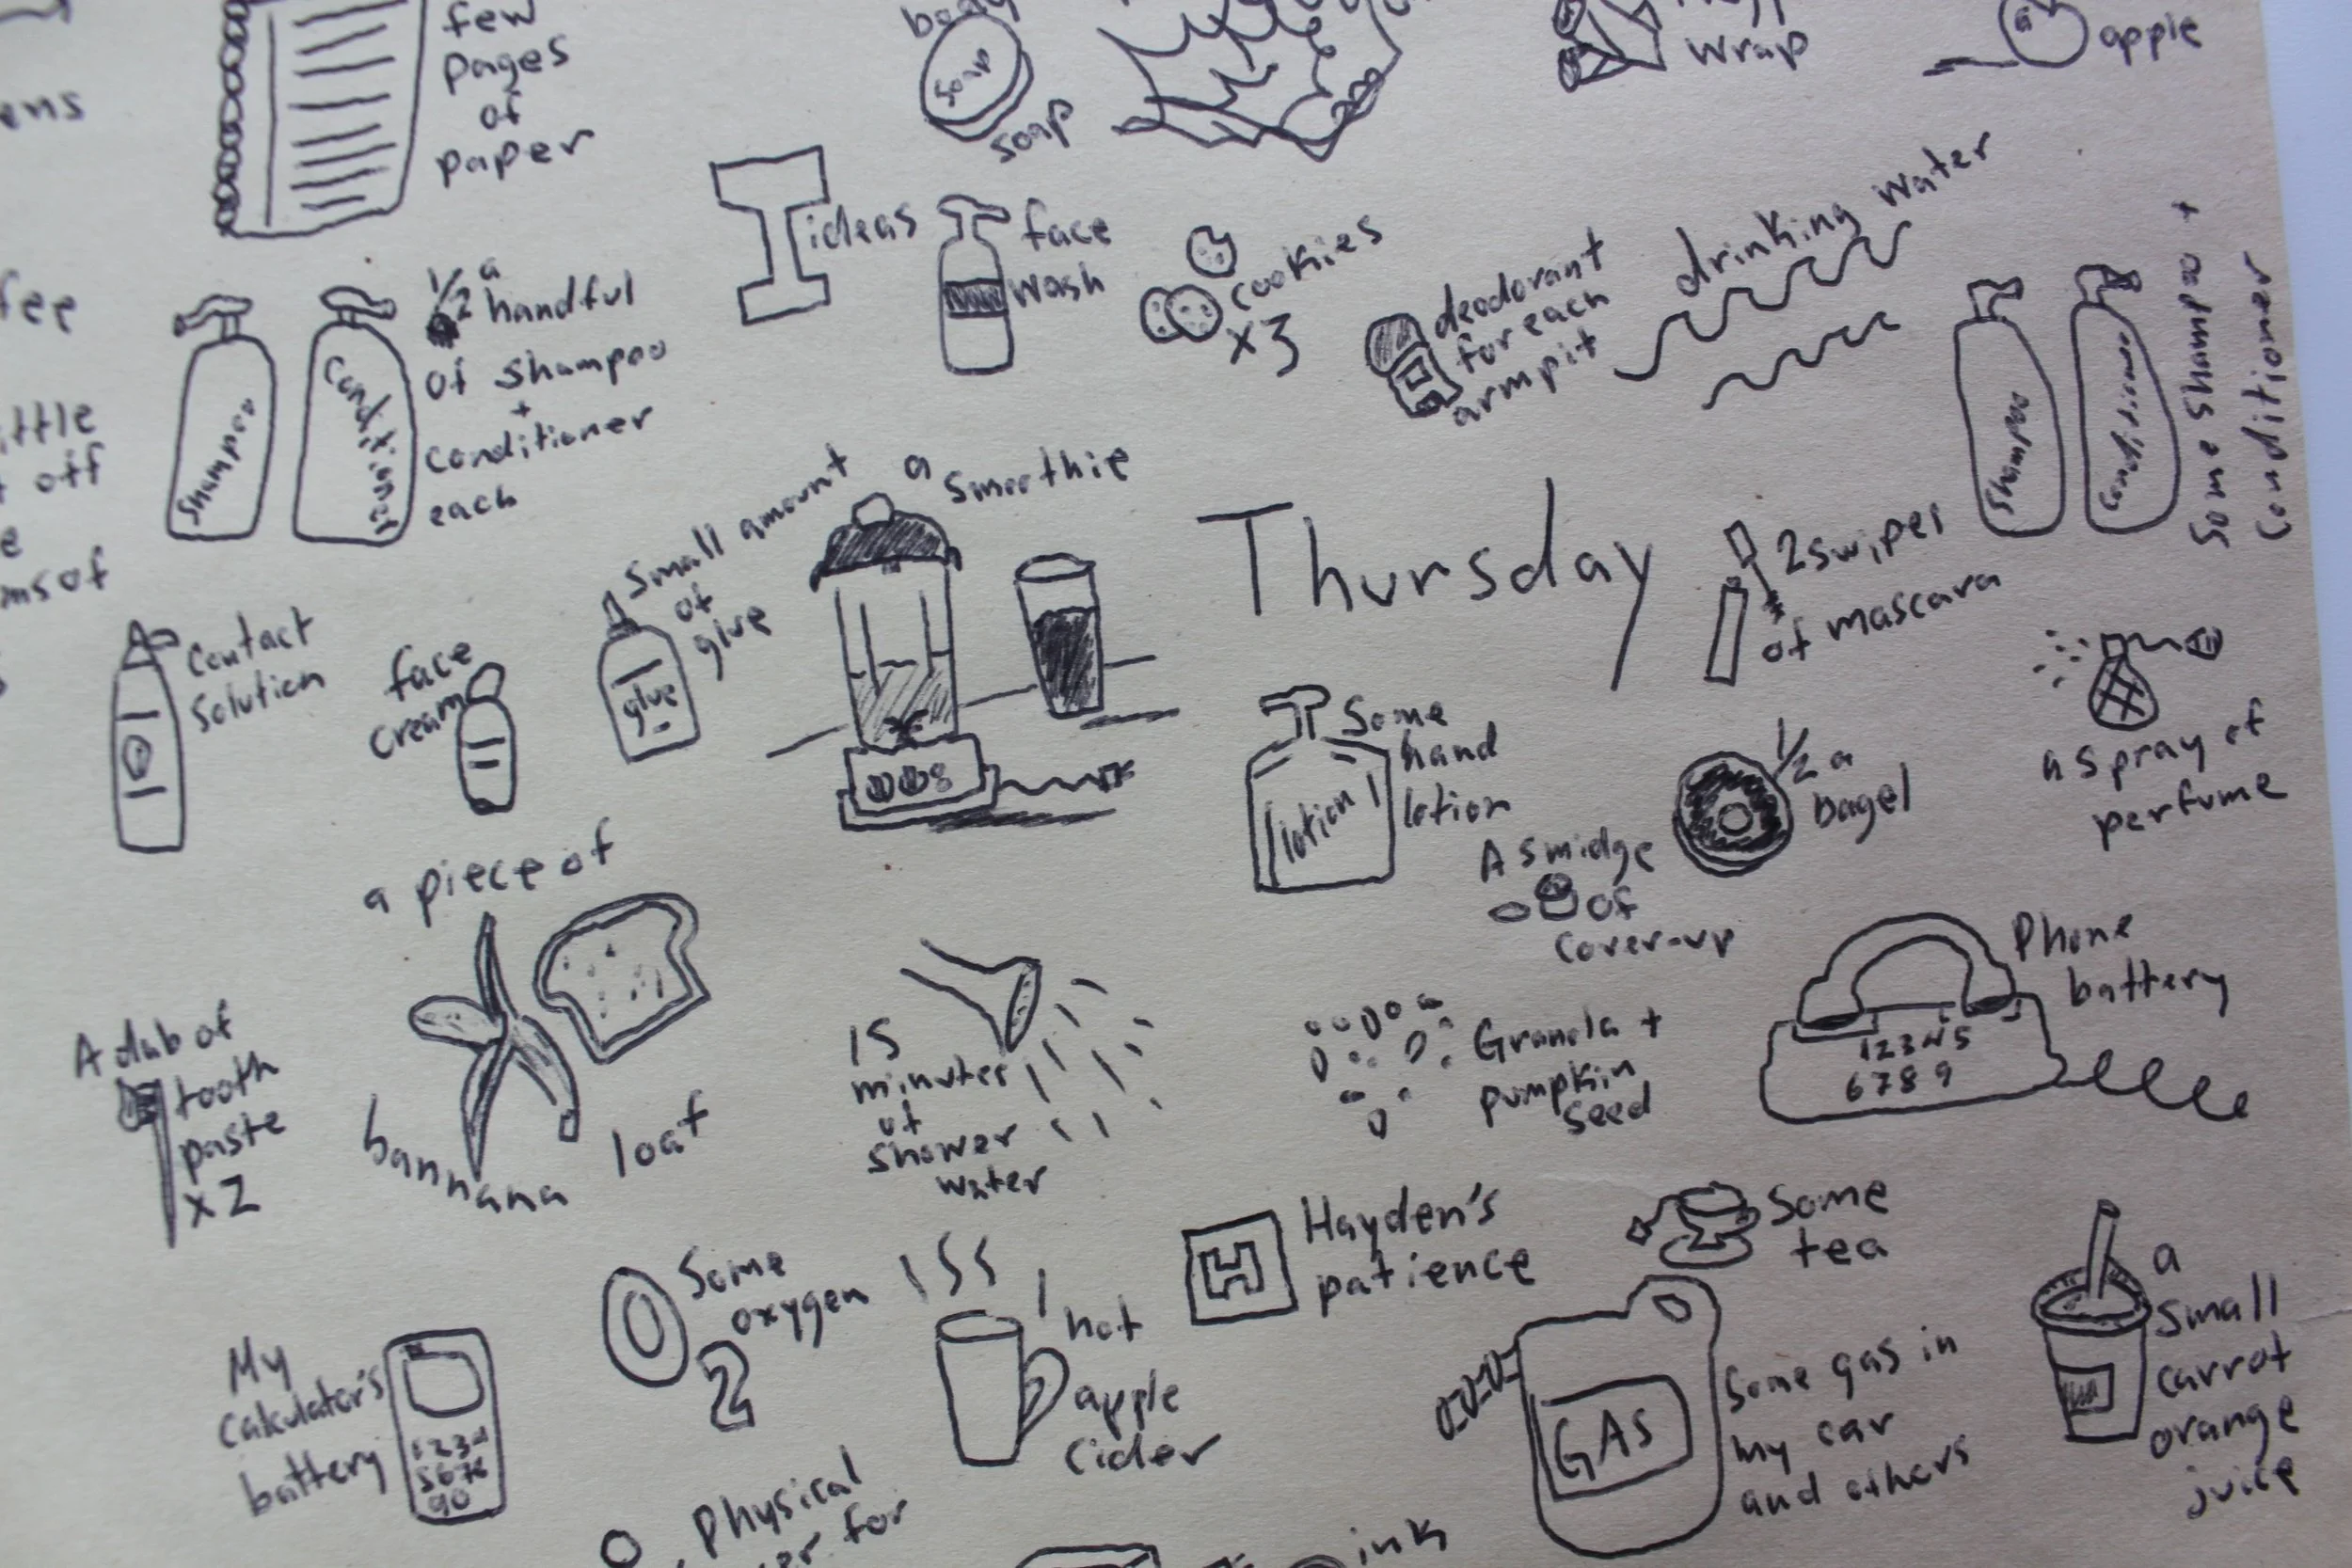 few
pages
of
paper
ens
soap
soap
wrap
apple
ideas
face
wash
cookies
x3
deodorant
for each
armpit
drinking water
shampoo
conditioner
1/2 a
handful
of shampoo
+
conditioner
each
shampoo
conditioner
some shampoo +
conditioner
fee
off
contact
solution
face
cream
small amount
of
glue
glue
a smoothie
Thursday
2 swipes
of mascara
lotion
some
hand
lotion
1/2 a
bagel
a spray of
perfume
A smidge
of
cover-up
a piece of
bannana
loaf
A dab of
tooth
paste
x2
15
minutes
of
shower
water
Granola +
pumpkin
seed
Phone
battery
12345
6789
My
calculator's
battery
1234
5678
90
O
2
some
oxygen
hot
apple
cider
H
Hayden's
patience
some
tea
GAS
some gas in
my car
and others
a
small
carrot
orange
juice
physical
for
ink